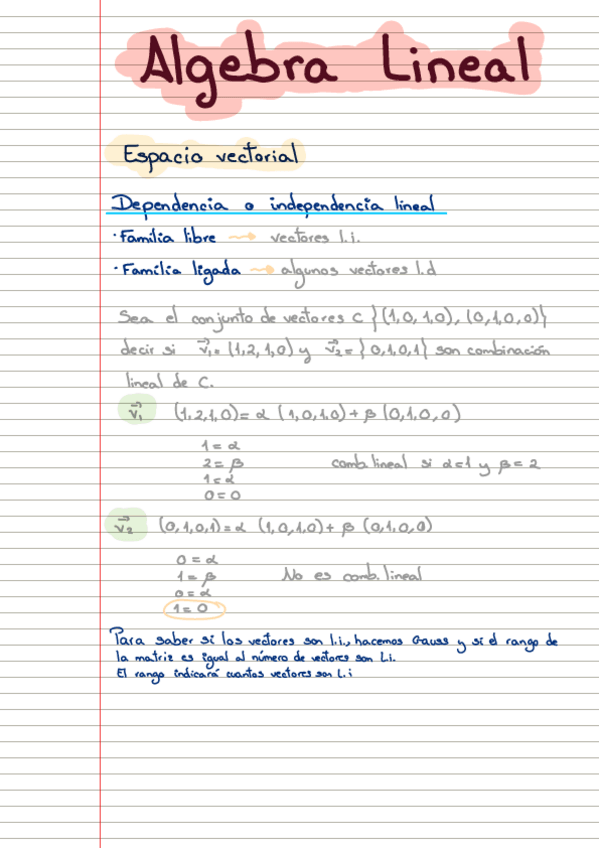 Algebra Lineal
Espacio vectorial
Dependencia o independencia lineal
· Familia libre → vectores l.i.
· Familia ligada → algunos vectores l.d
Sea el conjunto de vectores C {(1,0,1,0), (0,1,0,0)}
decir si v⃗₁= (1,2,1,0) y v⃗₂= {0,1,0,1} son combinación
lineal de C.
v⃗₁ (1,2,1,0)= α (1,0,1,0)+ β (0,1,0,0)
1=α
2=β comb.lineal si α=1 y β=2
1=α
0=0
v⃗₂ (0,1,0,1)=α (1,0,1,0)+ β (0,1,0,0)
0=α
1=β No es comb.lineal
0=α
1=0
Para saber si los vectores son l.i., hacemos Gauss y si el rango de
la matriz es igual al número de vectores son l.i.
El rango indicará cuantos vectores son l.i